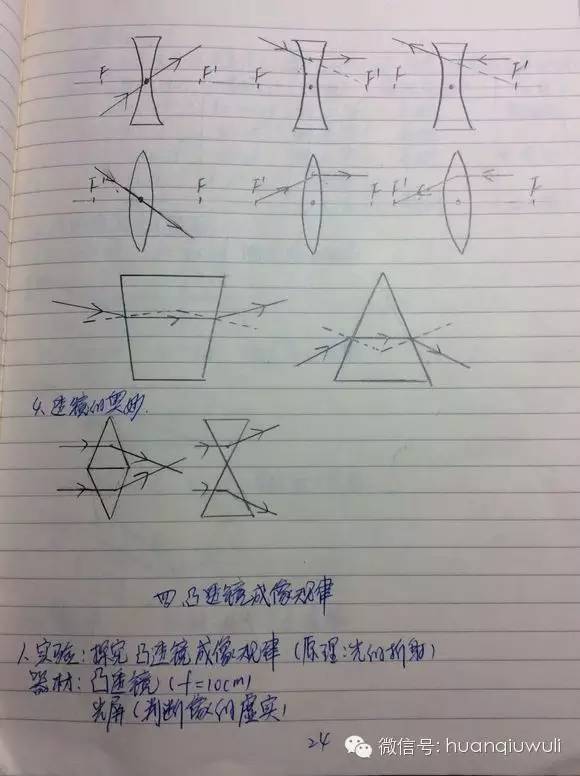 F F'
F F'
F F'
F' F
F' F
F' F
4、透镜的奥妙.
四 凸透镜成像规律
1、实验：探究凸透镜成像规律（原理：光的折射）
器材：凸透镜（f=10cm）
光屏（判断像的虚实）
24
微信号: huanqiuwuli